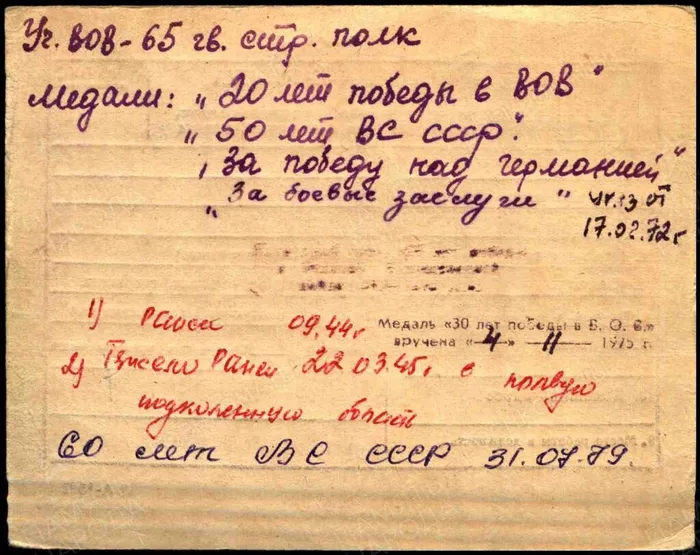 Уч. ВОВ - 65 гв. стр. полк
Медали: "20 лет победы в ВОВ"
"50 лет ВС СССР".
"За победу над Германией"
"За боевые заслуги" Ук.13 от
17.02.72г
1) Ранен 09.44г
Медаль «30 лет победы в В. О. В.»
вручена «4» 11 1975 г.
2) Тяжело Ранен 22 03.45г в
подколенную област
60 лет ВС СССР 31.07.79.